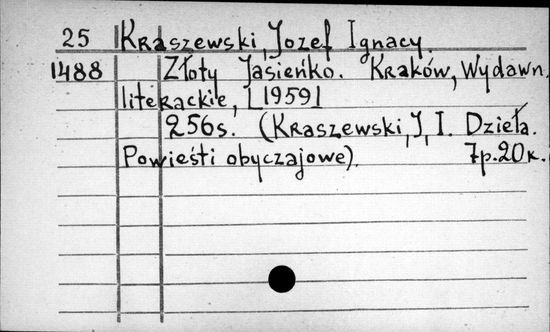 25 Kraszewski, Jozef Ignacy.
1488 Złoty Jasieńko. Kraków, Wydawn.
literackie, [1959]
256s. (Kraszewski, J. I. Dzieła.
Powieści obyczajowe). 7p.20k.